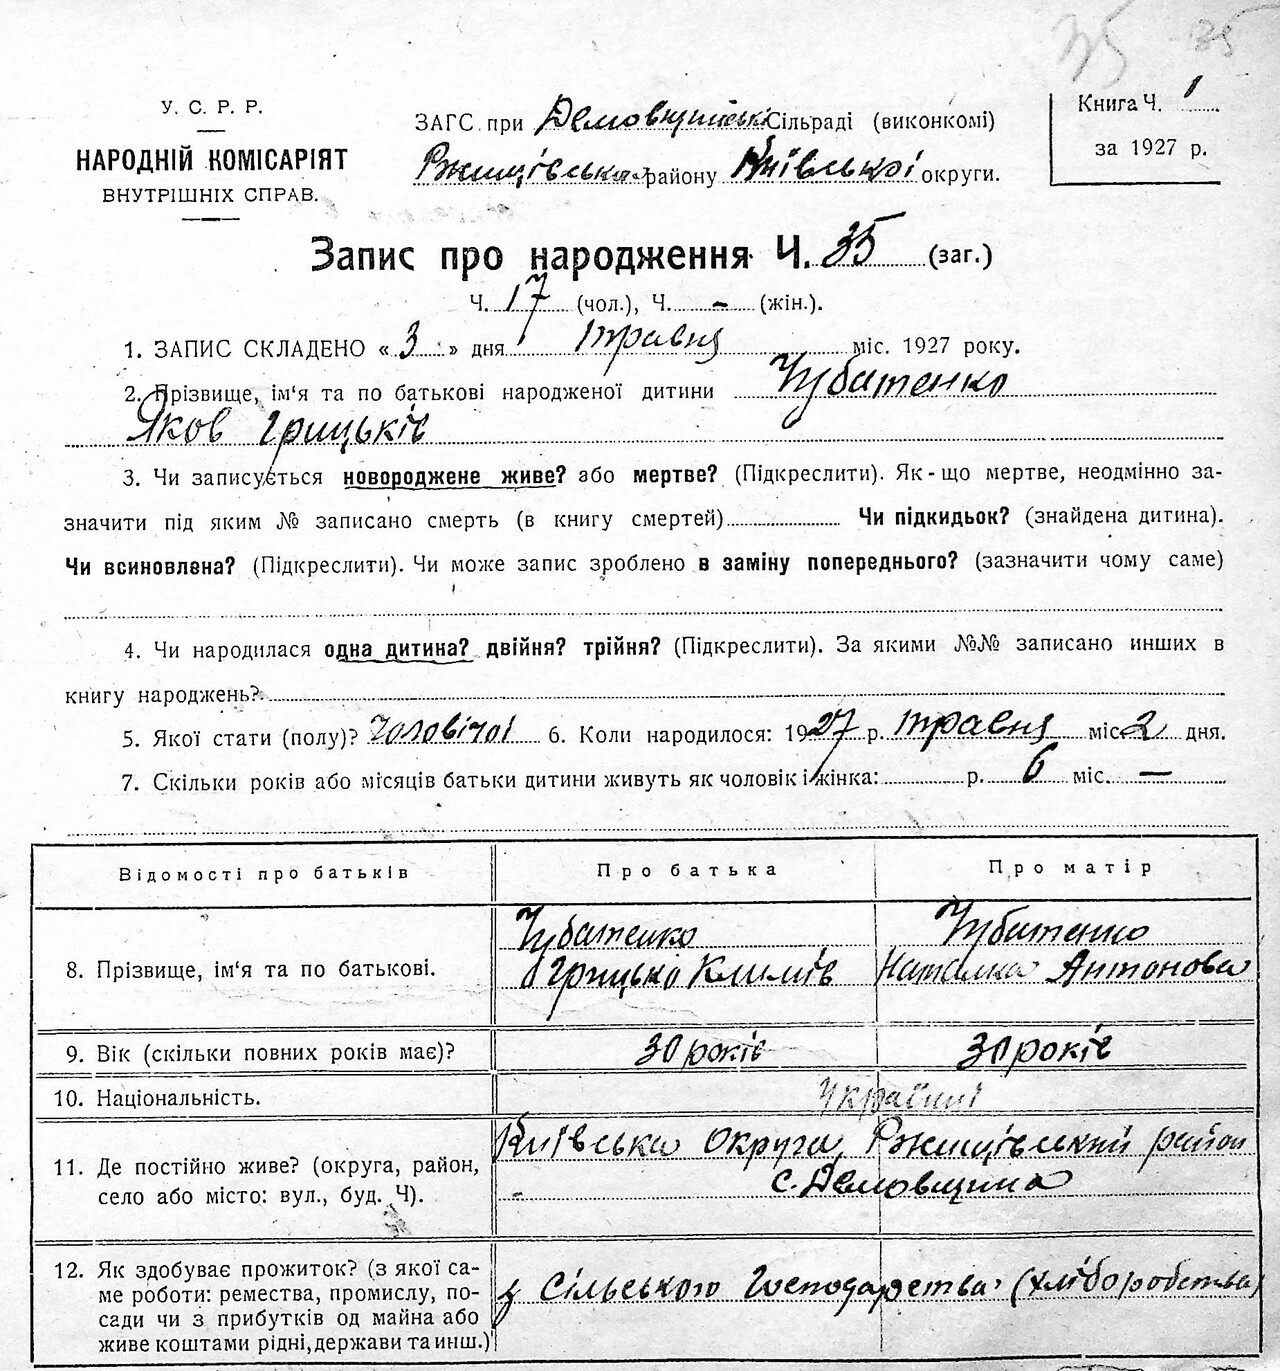 35 35
У. С. Р. Р.
НАРОДНІЙ КОМІСАРІЯТ
ВНУТРІШНІХ СПРАВ.
ЗАГС при Демовщинські Сільраді (виконкомі)
Ржищівська району Київської округи.
Книга Ч. 1
за 1927 р.
Запис про народження Ч. 35 (заг.)
Ч. 17 (чол.), Ч. - (жін.).
1. ЗАПИС СКЛАДЕНО « 3 » дня травня міс. 1927 року.
2. Прізвище, ім'я та по батькові народженої дитини Чубатенко
Яков Грицьків
3. Чи записується новороджене живе? або мертве? (Підкреслити). Як-що мертве, неодмінно за-
значити під яким № записано смерть (в книгу смертей) Чи підкидьок? (знайдена дитина).
Чи всиновлена? (Підкреслити). Чи може запис зроблено в заміну попереднього? (зазначити чому саме)
4. Чи народилася одна дитина? двійня? трійня? (Підкреслити). За якими №№ записано инших в
книгу народжень?
5. Якої стати (полу)? чоловічої 6. Коли народилося: 1927 р. травня міс. 2 дня.
7. Скільки років або місяців батьки дитини живуть як чоловік і жінка: р. 6 міс. —
Відомості про батьків Про батька Про матір
8. Прізвище, ім'я та по батькові. Чубатенко Грицько Климів Чубатенко Наталка Антонова
9. Вік (скільки повних років має)? 30 років 30 років
10. Національність. Україниі
11. Де постійно живе? (округа, район, Київська округа, Ржищівський район
село або місто: вул., буд. Ч). с. Демовщина
12. Як здобуває прожиток? (з якої са-
ме роботи: ремества, промислу, по- з Сільського Господарства (хліборобства)
сади чи з прибутків од майна або
живе коштами рідні, держави та инш.)